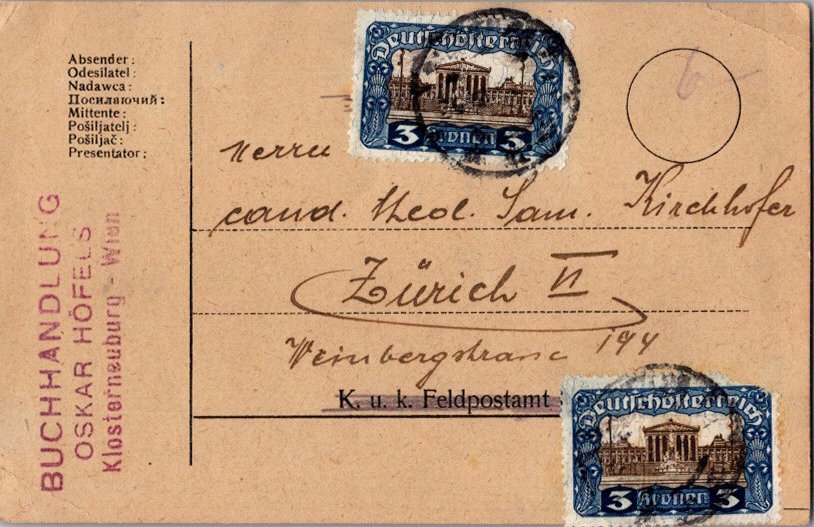 Absender:
Odesílatel:
Nadawca:
Посилаючий:
Mittente:
Pošiljatelj:
Pošiljač:
Presentator:
BUCHHANDLUNG
OSKAR HÖFELS
Klosterneuburg - Wien
Deutschösterreich
3 Kronen 3
6-
Herrn
cand. theol. Sam. Kirchhofer
Zürich II
Weinbergstrasse 144
K. u. k. Feldpostamt
Deutschösterreich
3 Kronen 3